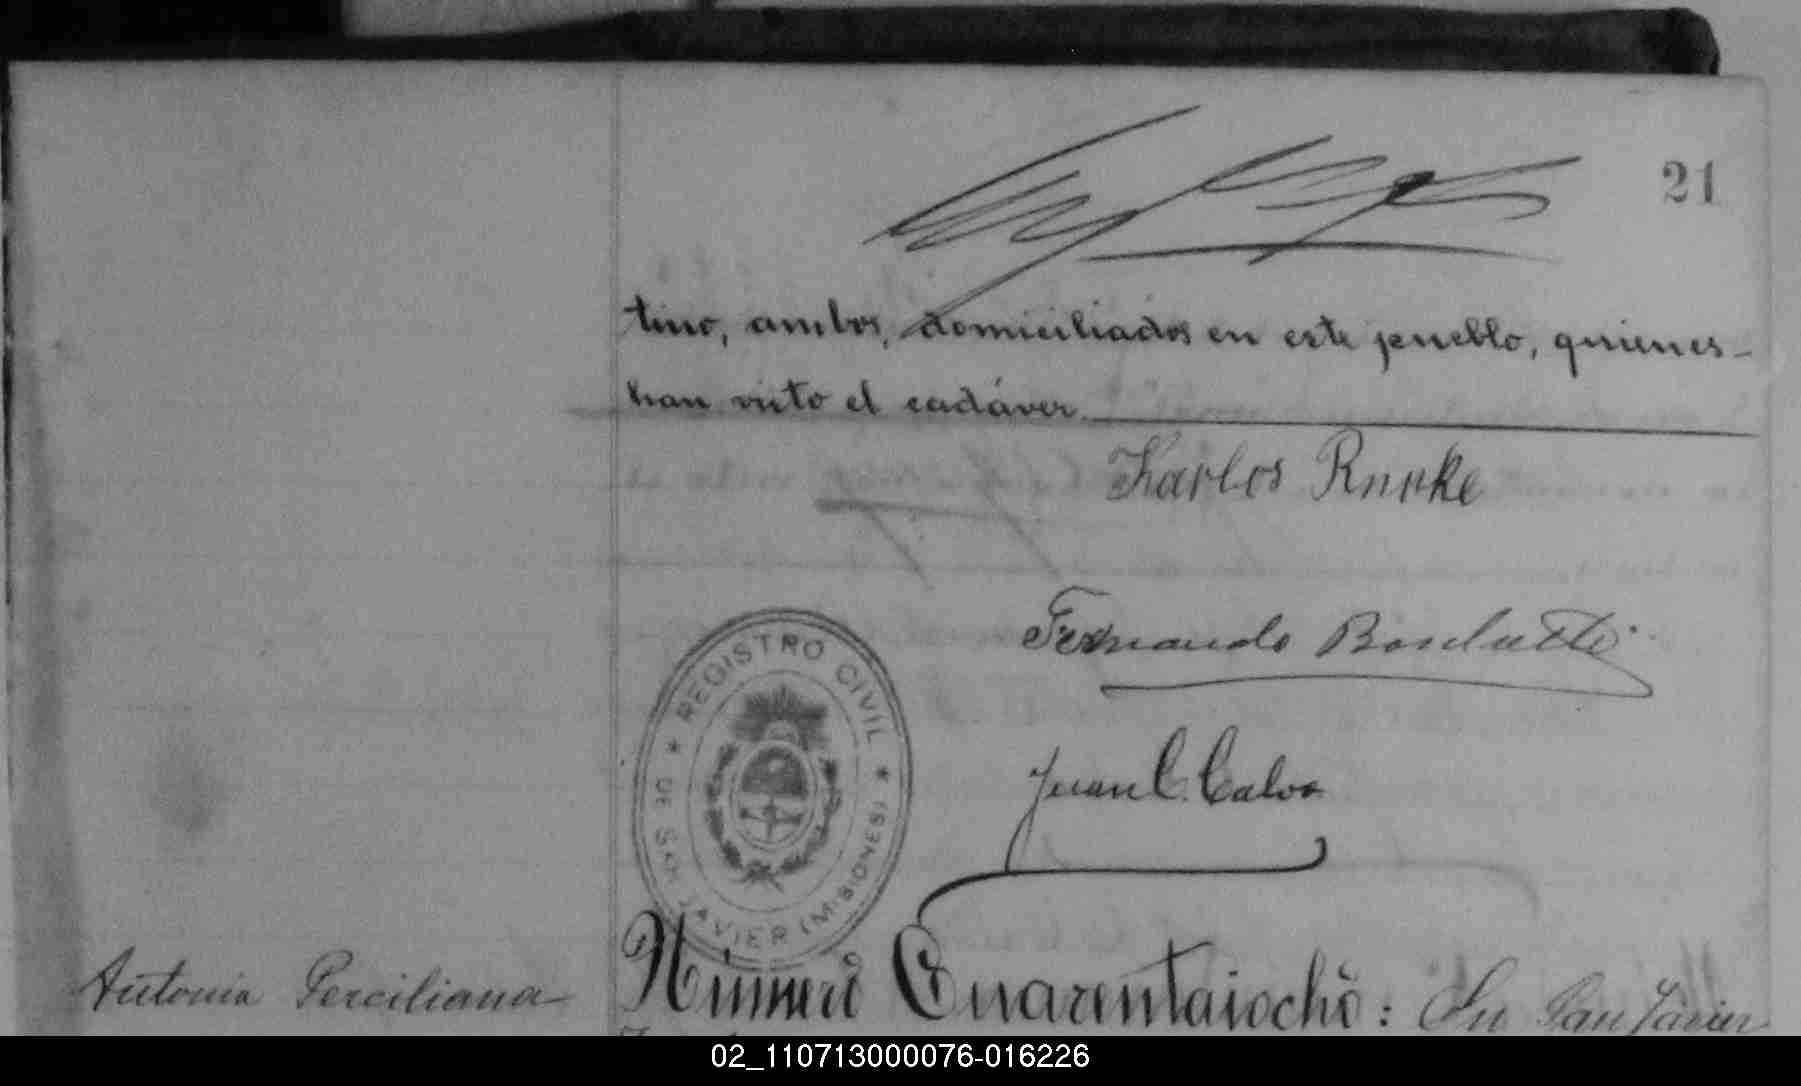 21
tino, ambos, domiciliados en este pueblo, quienes
han visto el cadáver.
Karlos
Fernando
Juan C. Calvo
REGISTRO CIVIL
DE SAN JAVIER (MISIONES)
Antonia Perciliana
Número Cuarentaiocho: En San Javier
02_110713000076-016226